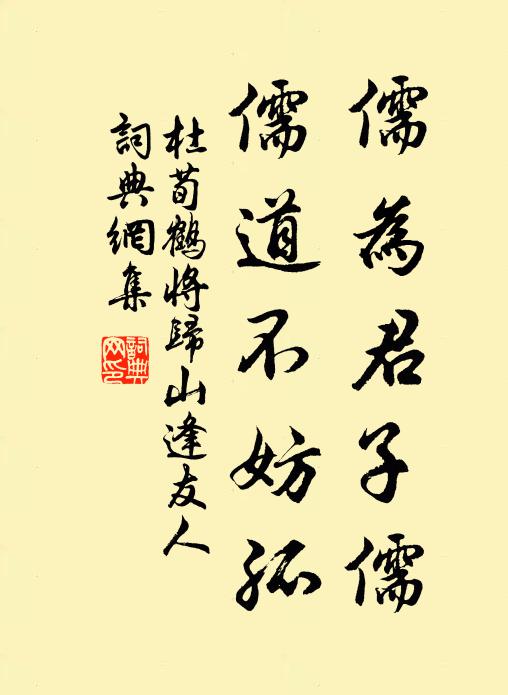 儒為君子儒
儒道不妨孤
杜荀鶴將歸山逢友人
詞典網集
詞典網印